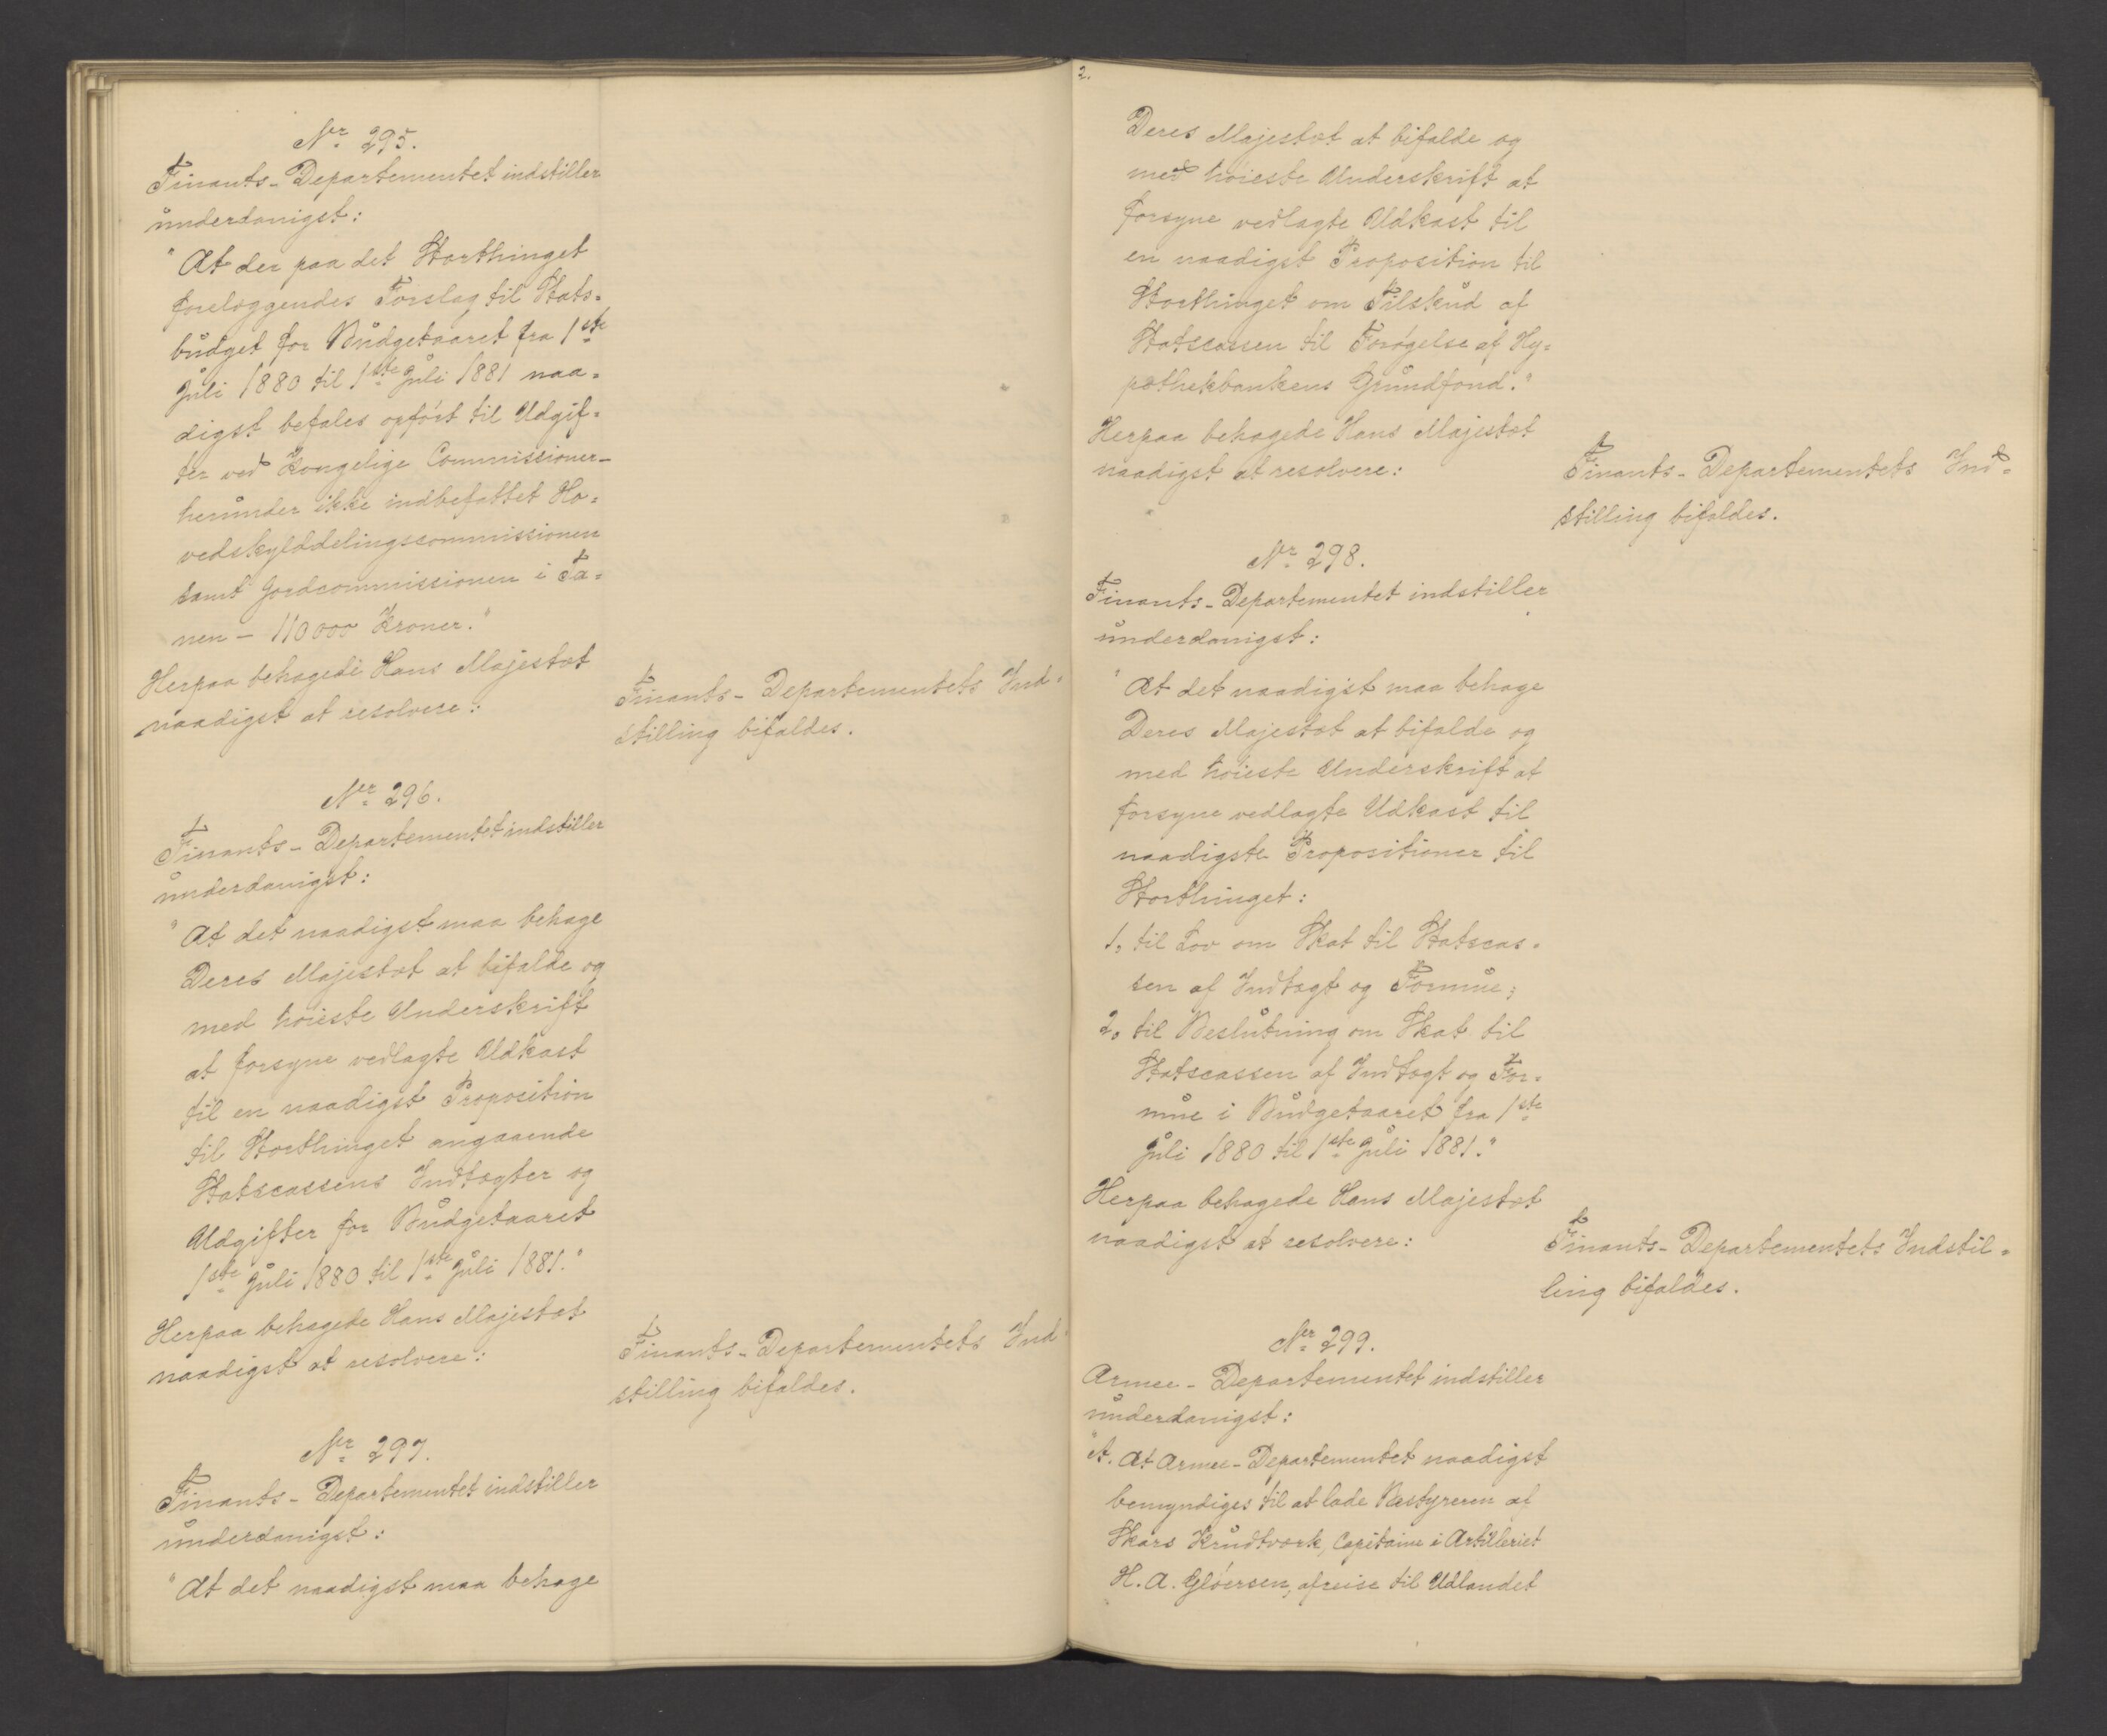 Nr. 295.
Finants-Departementet indstiller
underdanigst:
"At der paa det Storthinget
forelæggendes Forslag til Stats=
budget for Budgetaaret fra 1ste
Juli 1880 til 1ste Juli 1881 naa=
digst befales opført til Udgif=
ter ved Kongelige Commissioner -
herunder ikke indbefattet Ho=
vedskylddelingscommissionen
samt Jordcommissionen i Ta=
nen - 110000 Kroner."
Herpaa behagede Hans Majestæt
naadigst at resolvere:
Finants-Departementets Ind=
stilling bifaldes.
Nr. 296.
Finants-Departementet indstiller
underdanigst:
"At det naadigst maa behage
Deres Majestæt at bifalde og
med høieste Underskrift
at forsyne vedlagte Udkast
til en naadigst Proposition
til Storthinget angaaende
Statscassens Indtægter og
Udgifter for Budgetaaret
1ste Juli 1880 til 1ste Juli 1881."
Herpaa behagede Hans Majestæt
naadigst at resolvere:
Finants-Departementets Ind=
stilling bifaldes.
Nr. 297.
Finants-Departementet indstiller
underdanigst:
"At det naadigst maa behage
2.
Deres Majestæt at bifalde og
med høieste Underskrift at
forsyne vedlagte Udkast til
en naadigst Proposition til
Storthinget om Tilskud af
Statscassen til Forøgelse af Hy=
pothekbankens Grundfond."
Herpaa behagede Hans Majestæt
naadigst at resolvere:
Finants-Departementets Ind=
stilling bifaldes.
Nr. 298.
Finants-Departementet indstiller
underdanigst:
"At det naadigst maa behage
Deres Majestæt at bifalde og
med høieste Underskrift at
forsyne vedlagte Udkast til
naadigste Propositioner til
Storthinget:
1, til Lov om Skat til Statscas=
sen af Indtægt og Formue;
2, til Beslutning om Skat til
Statscassen af Indtægt og For=
mue i Budgetaaret fra 1ste
Juli 1880 til 1ste Juli 1881."
Herpaa behagede Hans Majestæt
naadigst at resolvere:
Finants-Departementets Indstil=
ling bifaldes.
Nr. 299.
Armee-Departementet indstiller
underdanigst:
"A. At Armee-Departementet naadigst
bemyndiges til at lade Bestyreren af
Skars Krudtværk, Capitaine i Artilleriet
H. A. Gløersen, afreise til Udlandet